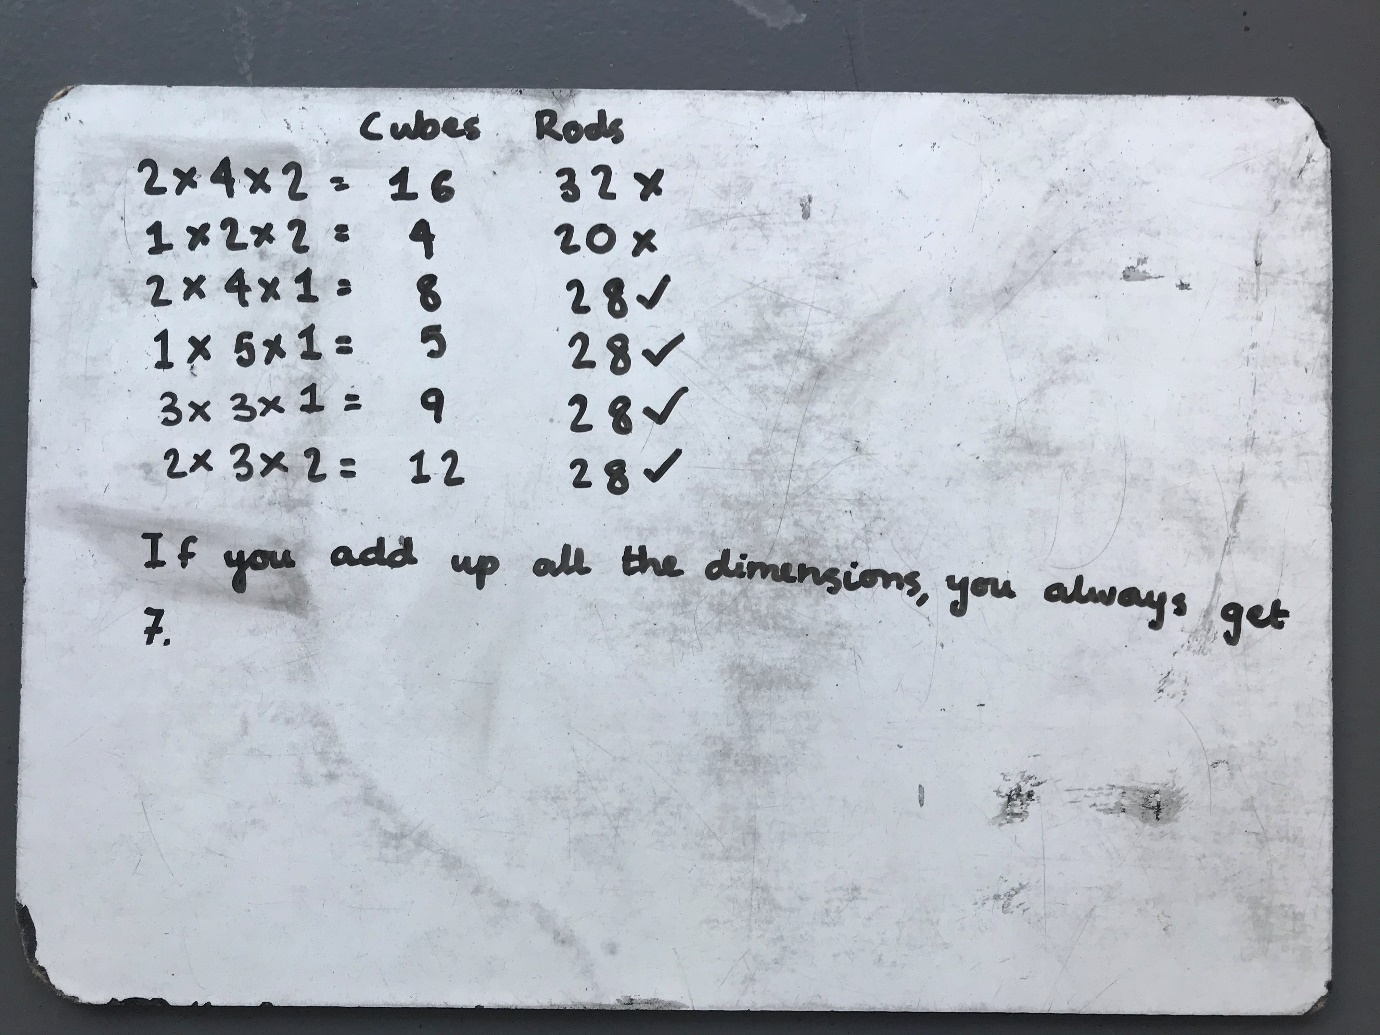 Cubes Rods
2 x 4 x 2 = 16 32 x
1 x 2 x 2 = 4 20 x
2 x 4 x 1 = 8 28 ✓
1 x 5 x 1 = 5 28 ✓
3 x 3 x 1 = 9 28 ✓
2 x 3 x 2 = 12 28 ✓
If you add up all the dimensions, you always get
7.